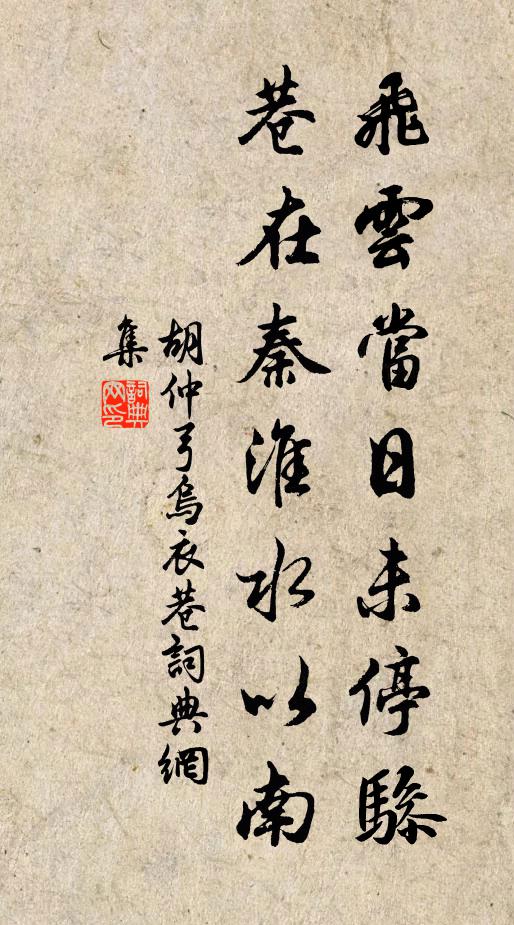 飛雲當日未停驂
巷在秦淮水以南
胡仲弓烏衣巷詞典網
集
詞典網印